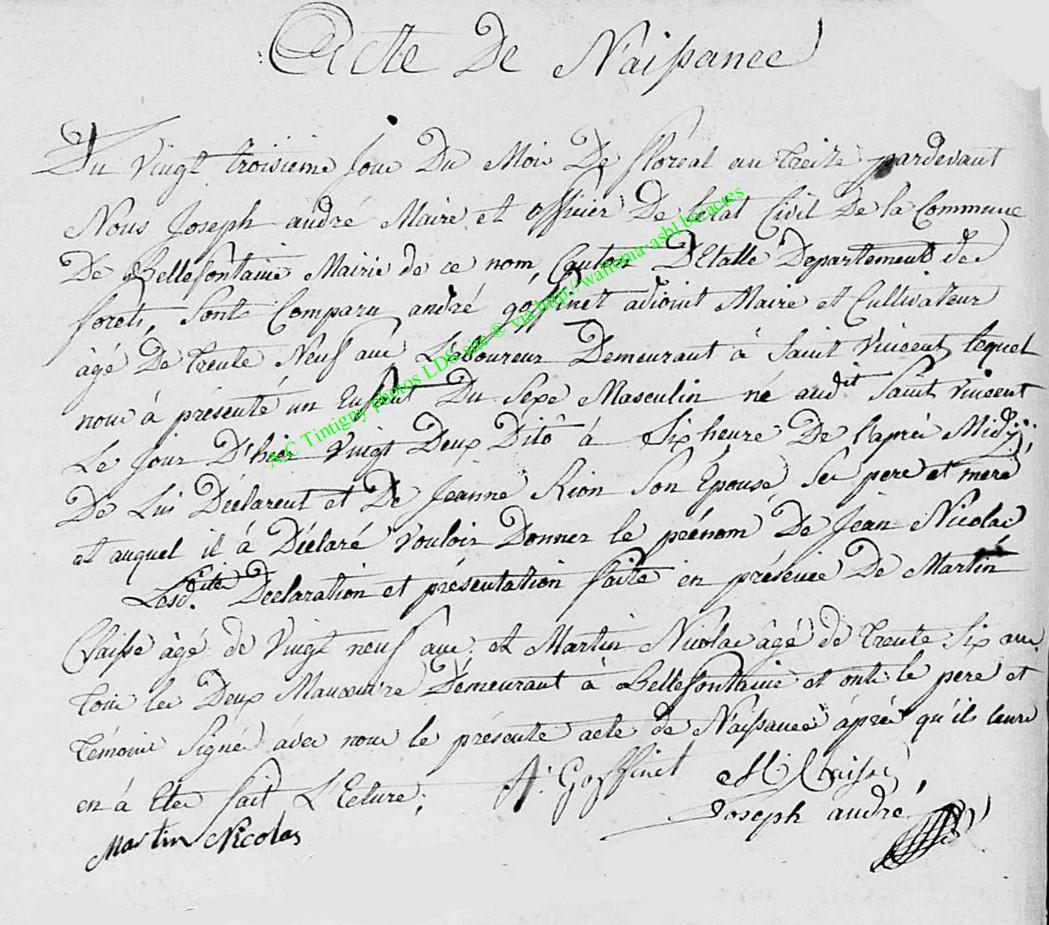 Acte De Naissance
Du Vingt troisieme Jour Du Mois De floreal an treize pardevant
Nous Joseph andré Maire et officier De l'etat Civil De la Commune
De Bellefontaine Mairie de ce nom, Canton D'Etalle Departement de
forets, Sont Comparu andré goffinet adjoint Maire et Cultivateur
âgé De trente Neuf ans Demeurant à Saint Vincent, lequel
nous à présenté un Enfant Du Sexe Masculin né audit Saint Vincent
Le Jour D'hier Vingt Deux Ditô à Six heure De l'après Midy;
De Lui Déclarent et De Jeanne Rion Son Epouse Ses pere et mere
et auquel il à Déclaré Vouloir Donner le prénom De Jean Nicolas
Lesdite Declaration et présentation faite en présence De Martin
Claisse âgé de Vingt neuf ans et Martin Nicolas âgé de trente Six ans
tous les Deux Demeurant à Bellefontaine et ont le pere et
témoins Signé avec nous le présente acte de Naissance après qu'ils leurs
en à Eter fait L'Ecture;
A: Goffinet M Claisse
Joseph andré
Martin Nicolas
A/C Tintigny photos LDS site ® via http://wallonia-asbl.be/actes